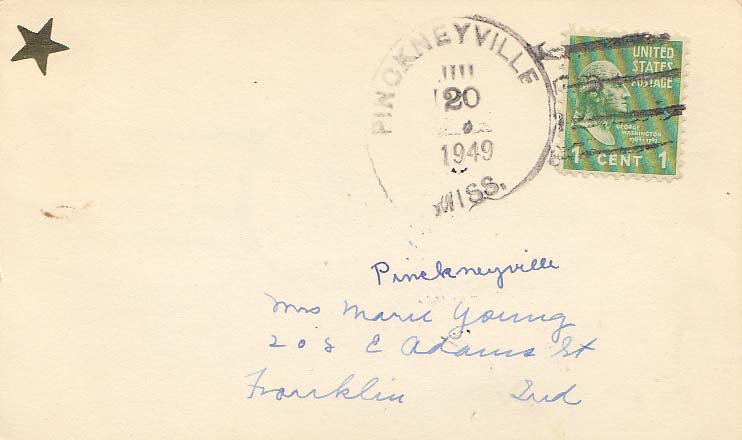 PINCKNEYVILLE
20
1949
MISS.
UNITED
STATES
POSTAGE
GEORGE
WASHINGTON
1789-1797
1 CENT 1
Pinckneyville
Mrs Marie Young
208 E Adams St
Franklin Ind